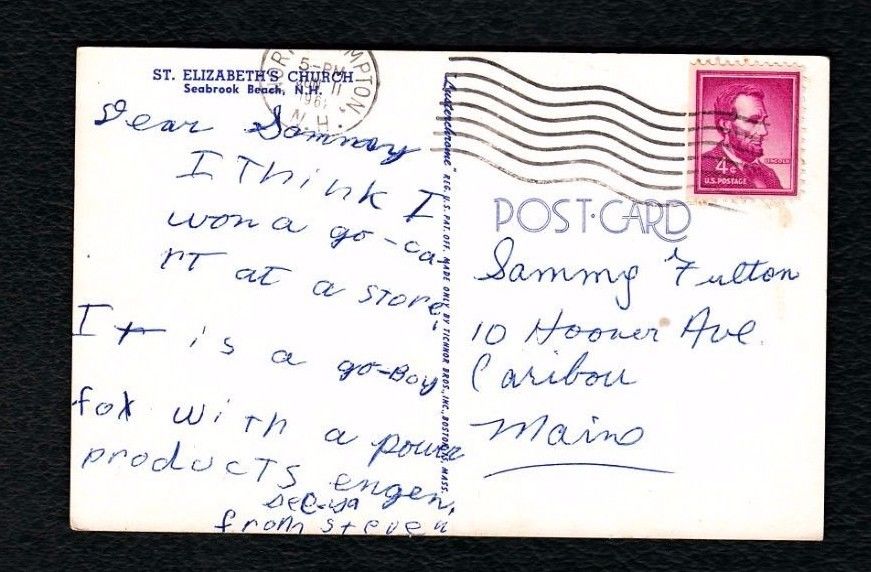 ST. ELIZABETH'S CHURCH
Seabrook Beach, N.H.
Dear Sammy
I Think I
won a go-ca-
rT aT a store.
IT is a go-Boy
fox wiTh a power
producTs engen.
See-ya
from steven
"Lusterchrome" REG. U.S. PAT. OFF. MADE ONLY BY TICHNOR BROS., INC., BOSTON, MASS.
HAMPTON,
5-PM
11
1961
N.H.
LINCOLN
4¢
U.S. POSTAGE
POST-CARD
Sammy Fulton
10 Hoover Ave.
Caribou
Maine